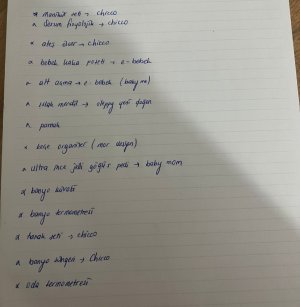 * manikür seti → chicco
* Serum fizyolojik → chicco
* ateş ölçer → chicco
* bebek kaka poşeti → e-bebek
* alt açma → e-bebek (babyme)
* ıslak mendil → sleepy yeni doğan
* pamuk
* organizer (mor design)
* ultra ince jelli göğüs pedi → baby mom
* banyo küveti
* banyo termometresi
* tarak seti → chicco
* banyo süngeri → Chicco
* oda termometresi